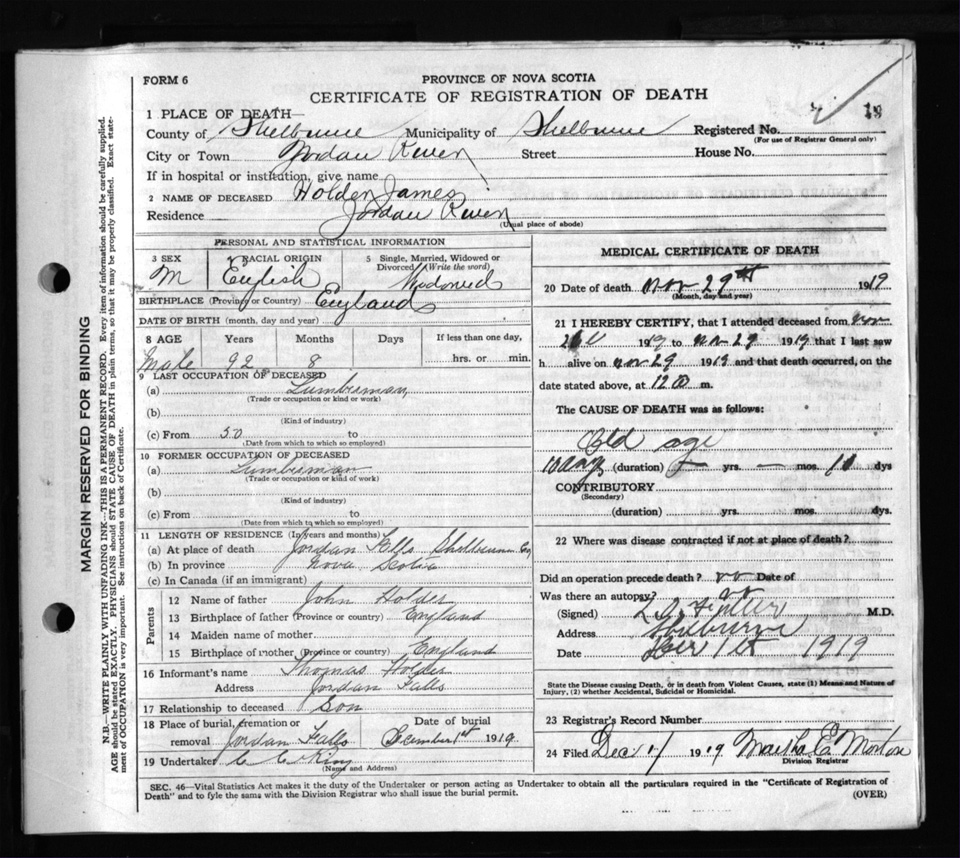 FORM 6
PROVINCE OF NOVA SCOTIA
CERTIFICATE OF REGISTRATION OF DEATH
1 PLACE OF DEATH—
County of Shelburne Municipality of Shelburne Registered No. 19
(For use of Registrar General only)
City or Town Jordan River Street House No.
If in hospital or institution, give name
2 NAME OF DECEASED Holder James
Residence Jordan River
(Usual place of abode)
PERSONAL AND STATISTICAL INFORMATION
3 SEX M
4 RACIAL ORIGIN English
5 Single, Married, Widowed or Divorced (Write the word) Widowed
BIRTHPLACE (Province or Country) England
DATE OF BIRTH (month, day and year)
8 AGE Years Months Days If less than one day,
Male 92 8 hrs. or min.
9 LAST OCCUPATION OF DECEASED
(a) Lumberman
(Trade or occupation or kind or work)
(b)
(Kind of industry)
(c) From 50 to
(Date from which to which so employed)
10 FORMER OCCUPATION OF DECEASED
(a) Lumberman
(Trade or occupation or kind or work)
(b)
(Kind of industry)
(c) From to
(Date from which to which so employed)
11 LENGTH OF RESIDENCE (In years and months)
(a) At place of death Jordan Falls Shelburne Co
(b) In province Nova Scotia
(c) In Canada (if an immigrant)
Parents
12 Name of father John Holder
13 Birthplace of father (Province or country) England
14 Maiden name of mother
15 Birthplace of mother (Province or country) England
16 Informant's name Thomas Holder
Address Jordan Falls
17 Relationship to deceased Son
18 Place of burial, cremation or removal Jordan Falls
Date of burial December 1st 1919
19 Undertaker C C King
(Name and Address)
MEDICAL CERTIFICATE OF DEATH
20 Date of death Nov 29th 1919
(Month, day and year)
21 I HEREBY CERTIFY, that I attended deceased from Nov
1919 to Nov 29 1919 that I last saw
h alive on Nov 29 1919 and that death occurred, on the
date stated above, at 12 m.
The CAUSE OF DEATH was as follows:
Old age
(duration) — yrs. — mos. dys
CONTRIBUTORY
(Secondary)
(duration) yrs. mos. dys.
22 Where was disease contracted if not at place of death?
Did an operation precede death? no Date of
Was there an autopsy? no
(Signed) M.D.
Address Shelburne
Date Dec 1st 1919
State the Disease causing Death, or in death from Violent Causes, state (1) Means and Nature of
Injury, (2) whether Accidental, Suicidal or Homicidal.
23 Registrar's Record Number
24 Filed Dec 1919 Martha E Morton
Division Registrar
SEC. 46—Vital Statistics Act makes it the duty of the Undertaker or person acting as Undertaker to obtain all the particulars required in the "Certificate of Registration of
Death" and to fyle the same with the Division Registrar who shall issue the burial permit.
(OVER)
MARGIN RESERVED FOR BINDING
N.B.—WRITE PLAINLY WITH UNFADING INK—THIS IS A PERMANENT RECORD. Every item of information should be carefully supplied.
AGE should be stated EXACTLY. PHYSICIANS should STATE CAUSE OF DEATH in plain terms, so that it may be properly classified. Exact state-
ment of OCCUPATION is very important. See instructions on back of Certificate.